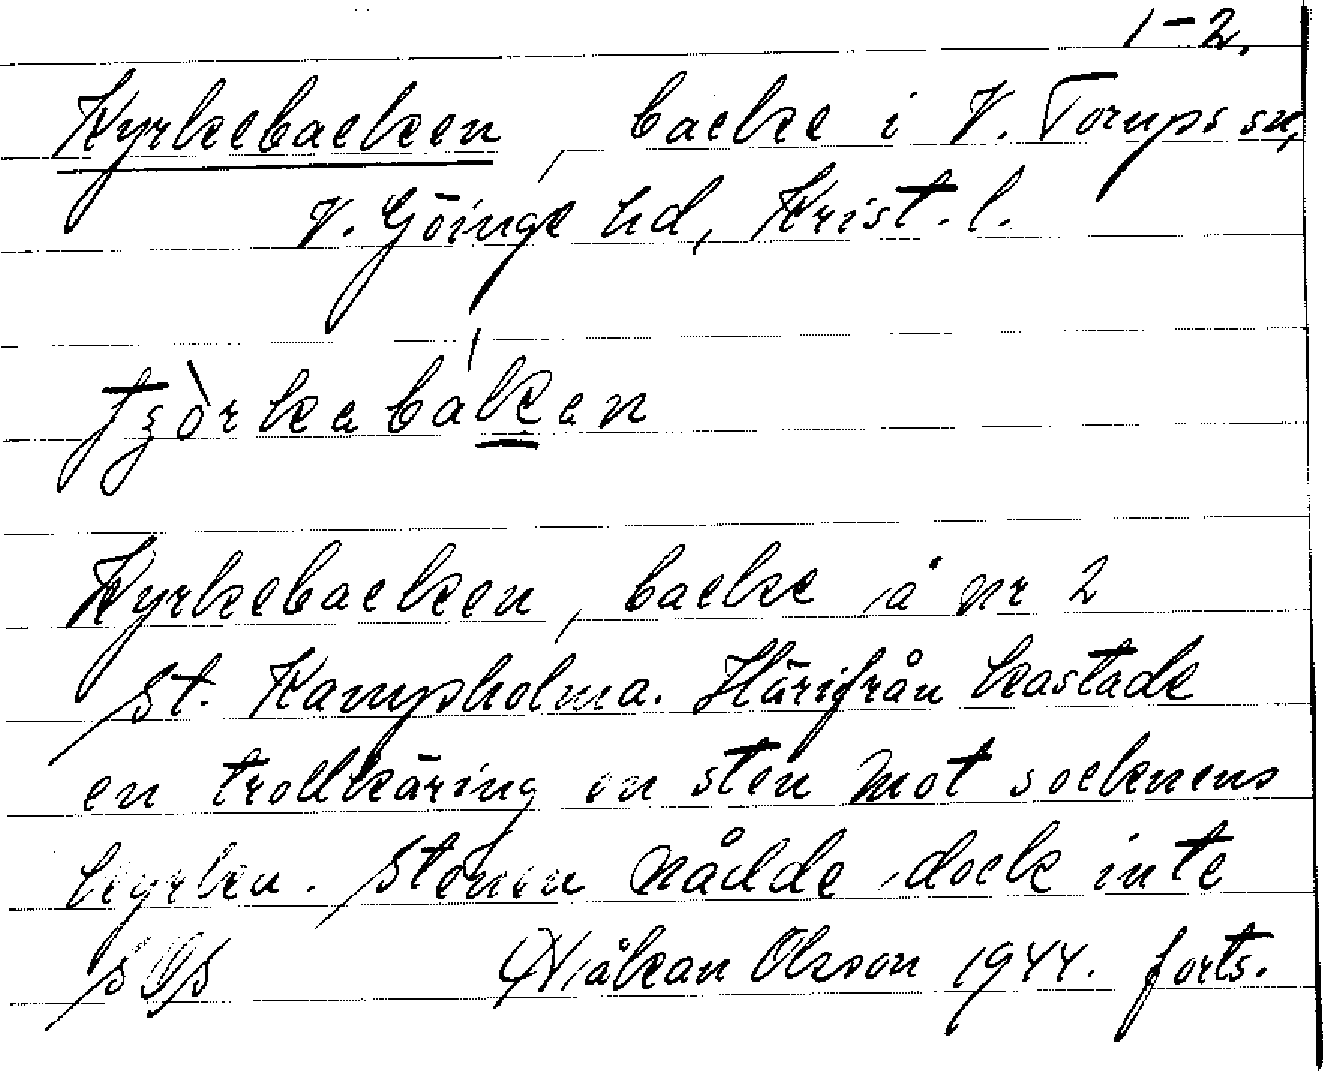 1-2.
Kyrkebacken, backe i V. Torups sn,
V. Göinge hd, Krist. l.
kyrkebacken, backe å nr 2
St. Kampholma. Härifrån kastade
en trollkäring en sten mot socknens
kyrka. Stenen nådde dock inte
SOS Håkan Olsson 1944. forts.